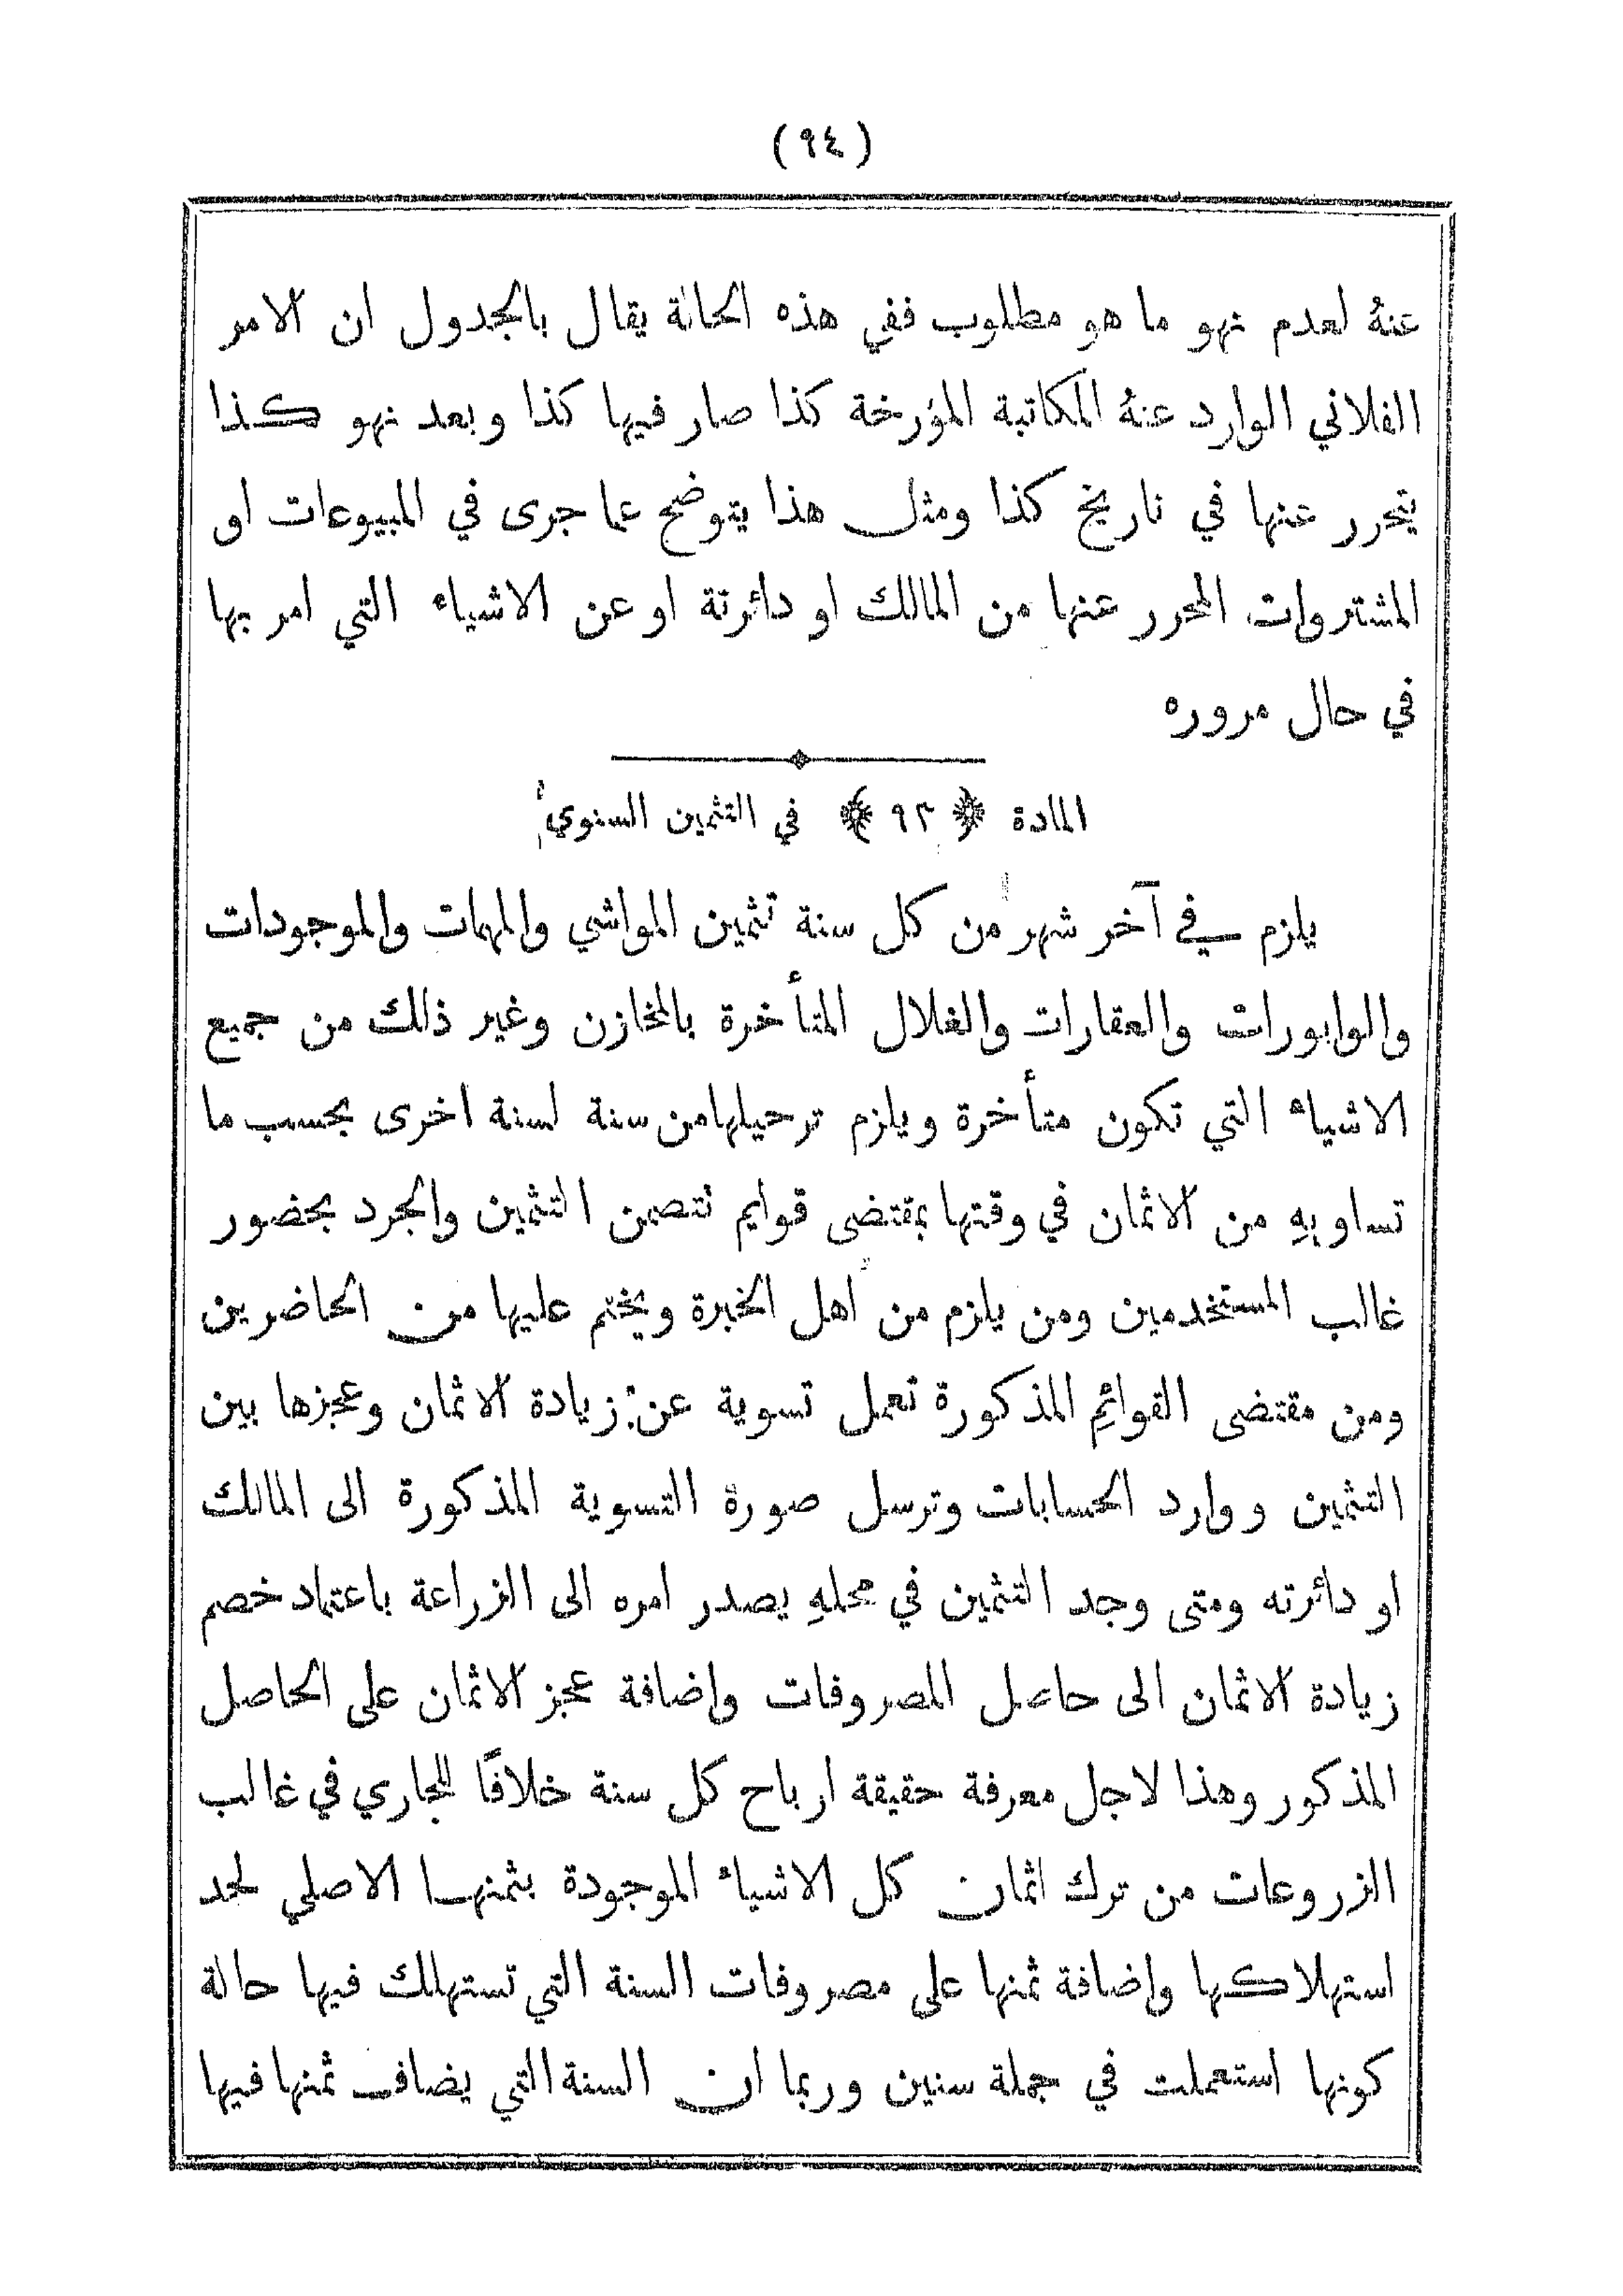 (٩٤)
عنهُ لعدم نهو ما هو مطلوب ففي هذه الحالة يقال بالجدول ان الامر
الفلاني الوارد عنهُ المكاتبة المؤرخة كذا صار فيها كذا وبعد نهو كذا
يتحرر عنها في تاريخ كذا ومثل هذا يتوضح عما جرى في المبيوعات او
المشتروات المحرر عنها من المالك او دائرتة او عن الاشياء التي امر بها
في حال مروره
المادة ﴿ ٩٢ ﴾ في التثمين السنوي
يلزم في آخر شهر من كل سنة تثمين المواشي والمهمات والموجودات
والوابورات والعقارات والغلال المتأخرة بالمخازن وغير ذلك من جميع
الاشياء التي تكون متأخرة ويلزم ترحيلها من سنة لسنة اخرى بحسب ما
تساويهِ من الاثمان في وقتها بمقتضى قوايم تتصمن التثمين والجرد بحضور
غالب المستخدمين ومن يلزم من اهل الخبرة ويختم عليها من الحاضرين
ومن مقتضى القوائم المذكورة تعمل تسوية عن زيادة الاثمان وعجزها بين
التثمين ووارد الحسابات وترسل صورة التسوية المذكورة الى المالك
او دائرته ومتى وجد التثمين في محلهِ يصدر امره الى الزراعة باعتماد خصم
زيادة الاثمان الى حاصل المصروفات واضافة عجز الاثمان على الحاصل
المذكور وهذا لاجل معرفة حقيقة ارباح كل سنة خلافًا للجاري في غالب
الزروعات من ترك اثمان كل الاشياء الموجودة بثمنها الاصلي لحد
استهلاكها واضافة ثمنها على مصروفات السنة التي تستهلك فيها حالة
كونها استعملت في جملة سنين وربما ان السنة التي يضاف ثمنها فيها